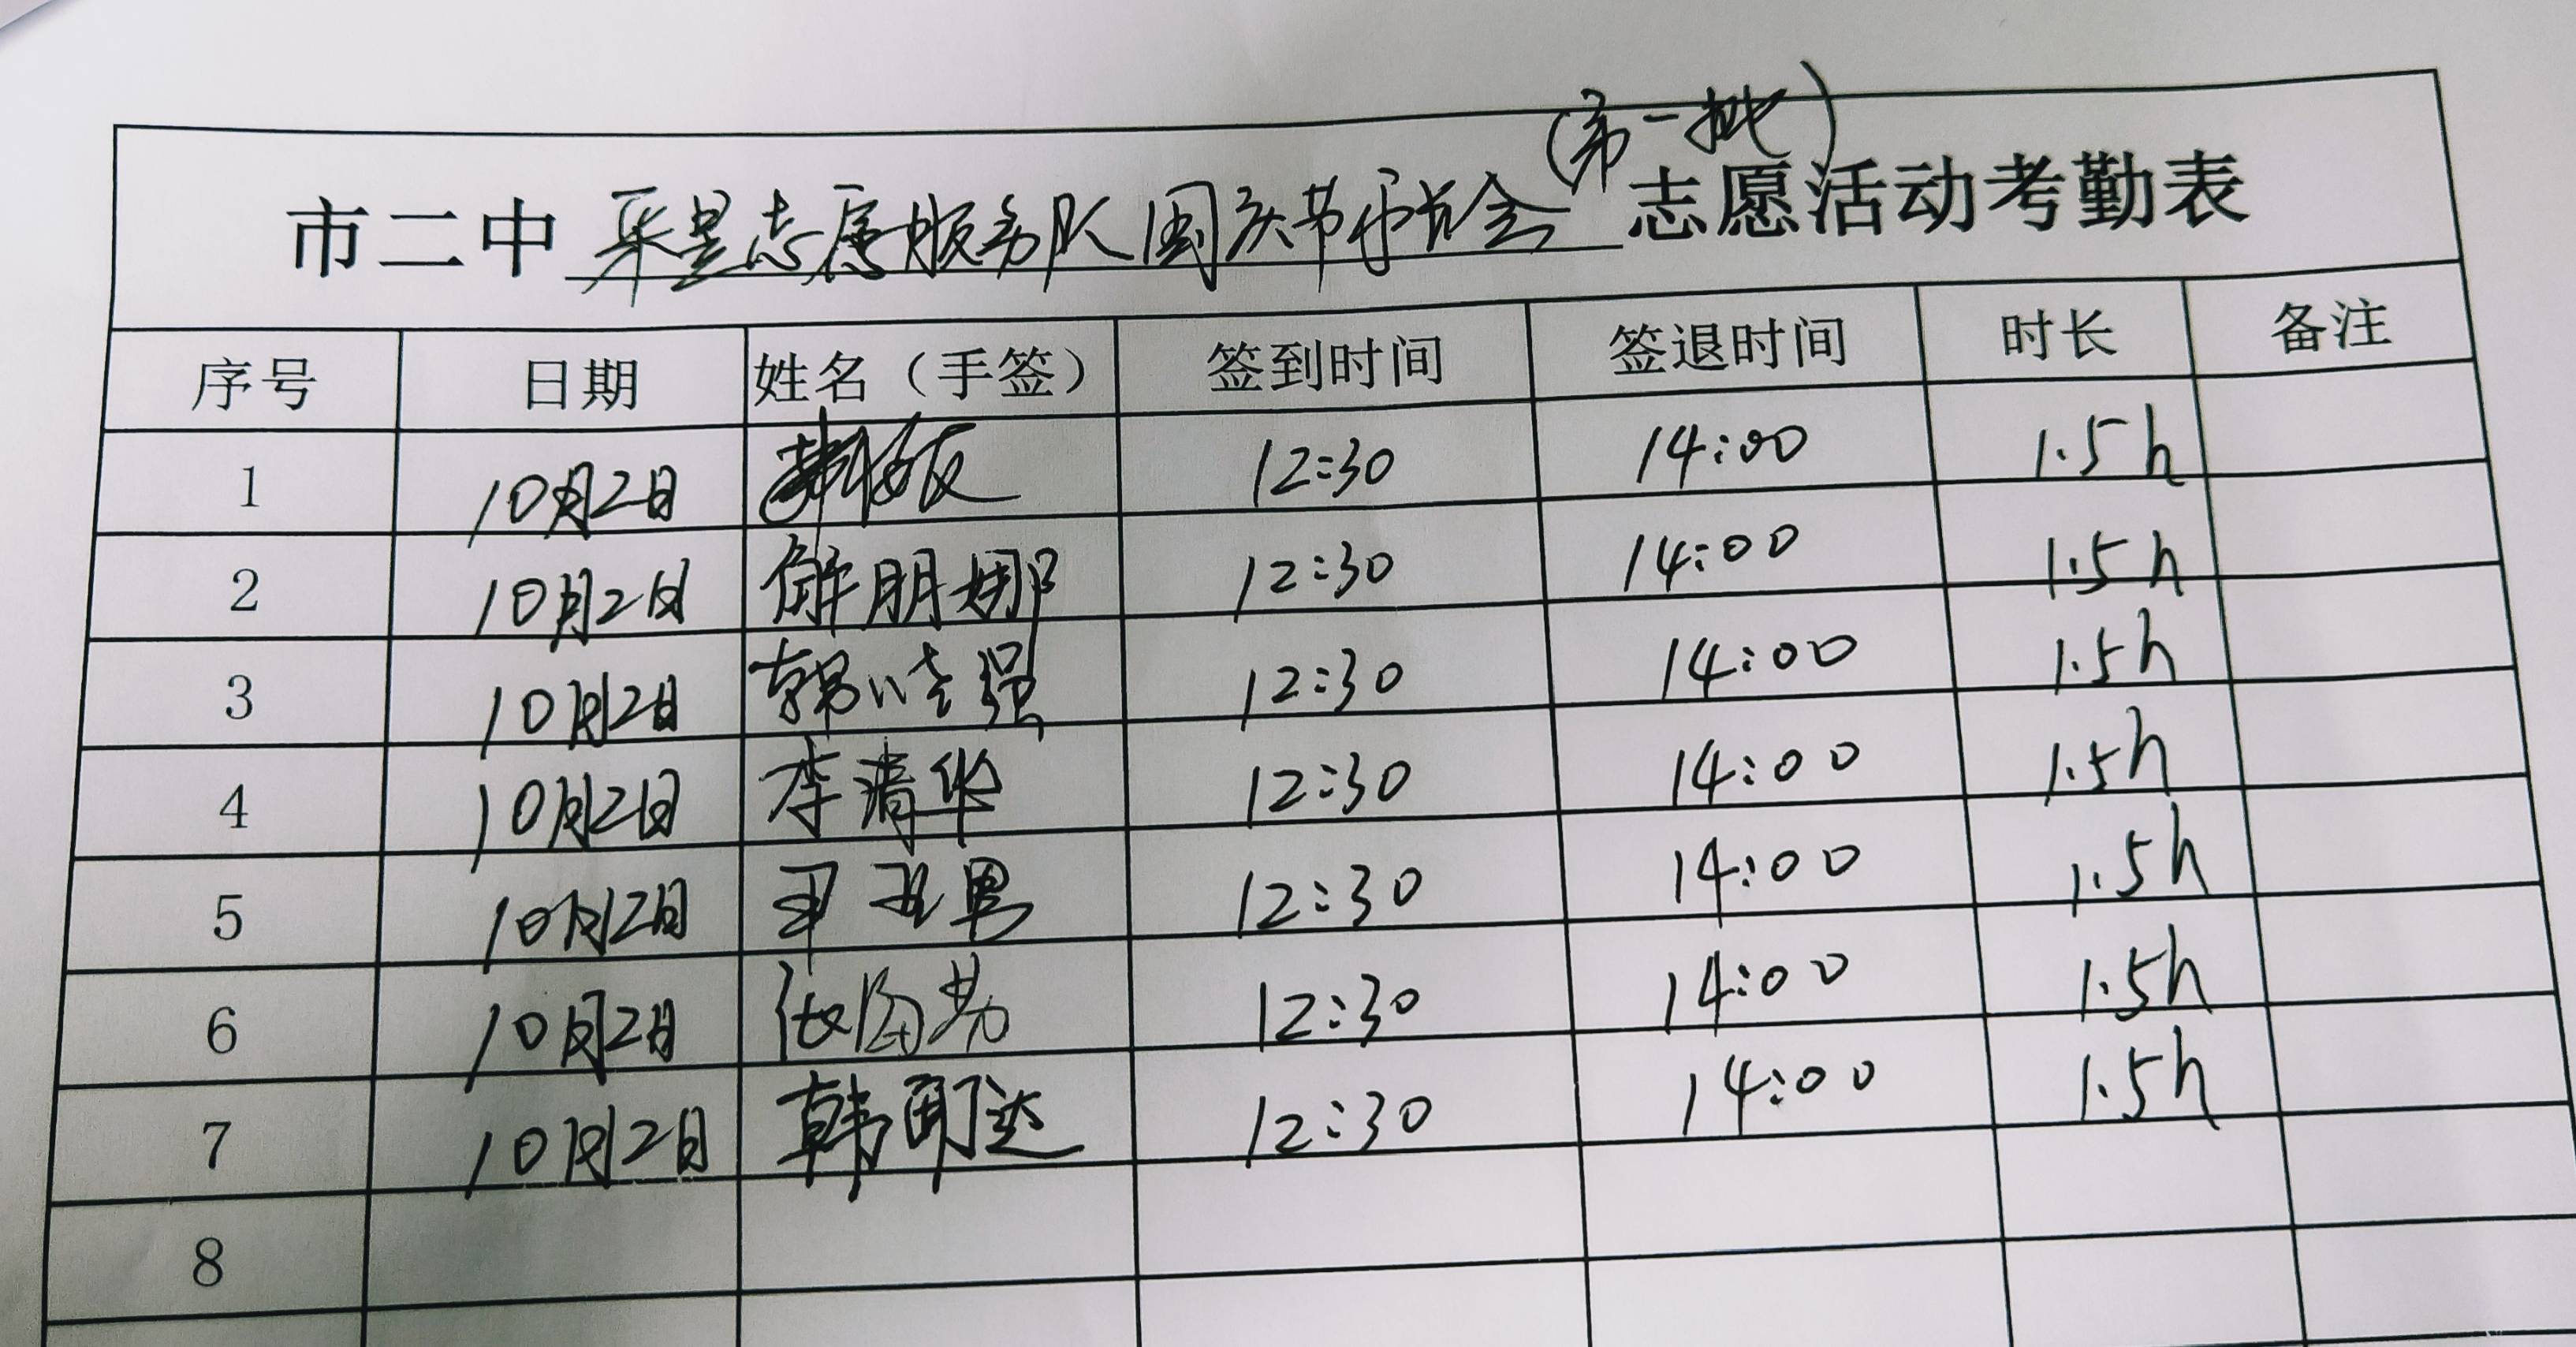 （第一批）
市二中 采星志愿服务队国庆节 会 志愿活动考勤表
序号 日期 姓名（手签） 签到时间 签退时间 时长 备注
1 10月2日 12:30 14:00 1.5h
2 10月2日 解朋娜 12:30 14:00 1.5h
3 10月2日 韩 强 12:30 14:00 1.5h
4 10月2日 李清华 12:30 14:00 1.5h
5 10月2日 男 12:30 14:00 1.5h
6 10月2日 12:30 14:00 1.5h
7 10月2日 韩 达 12:30 14:00 1.5h
8